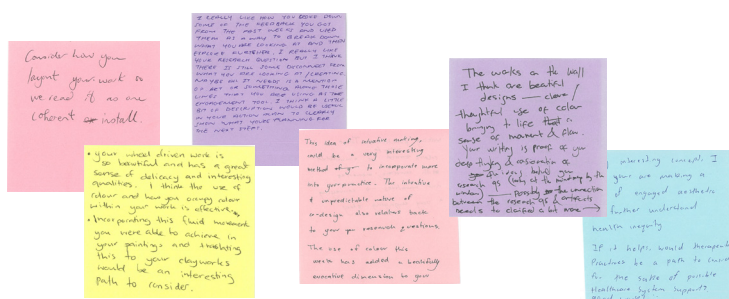 Consider how you
layout your work so
we read it as one
coherent install.
I REALLY LIKE HOW YOU BROKE DOWN
SOME OF THE FEEDBACK YOU GOT
FROM THE POST NOTES AND USED
THEM AS A WAY TO BREAK DOWN
WHAT YOU ARE LOOKING AT AND THEN
EXPLORE FURTHER. I REALLY LIKE
YOUR RESEARCH QUESTION BUT I THINK
THERE IS STILL SOME DISCONNECT FROM
WHAT YOU ARE LOOKING AT / CREATING.
MAYBE ALL IT NEEDS IS A MENTION
OF ART OR SOMETHING ALONG THOSE
LINES THAT YOU ARE USING AS THE
ENGAGEMENT TOOL. I THINK A LITTLE
BIT OF DESCRIPTION WOULD BE USEFUL
IN YOUR ACTION PLAN TO CLEARLY
SHOW WHAT YOU'RE PLANNING FOR
THE NEXT STEP.
• your wheel driven work is
so beautiful and has a great
sense of delicacy and interesting
qualities. I think the use of
colour and how you occupy colour
within your work is effective.
• Incorporating this fluid movement
you were able to achieve in
your paintings and translating
this to your clayworks
would be an interesting
path to consider.
This idea of intuitive making,
could be a very interesting
method for to incorporate more
into your practice. The intuitive
& unpredictable nature of
co-design also relates back
to your research questions.
The use of colour this
work has added a beautifully
evocative dimension to your
The works on the wall
I think are beautiful
designs — clever /
thoughtful use of colour
bringing to life a
sense of movement & plan.
Your writing is proof of you
deep thinking & exploration of
behind you
research
window) — possibly the connection
between the research & artefacts
needs to clarified a bit more →
interesting concept, I
your are making a
of engaged aesthetic
further understand
health inequity
If it helps, would therapeutic
Practices be a path to
for the sake of possible
Healthcare System support?